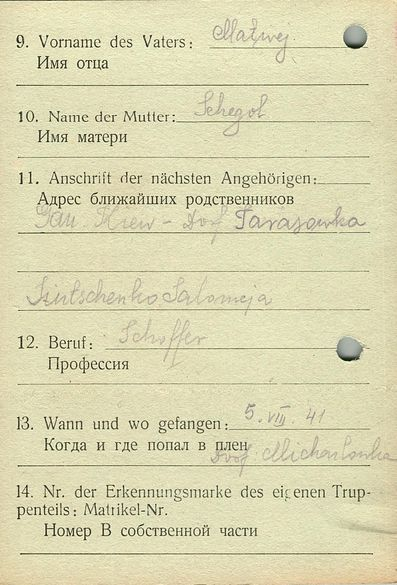 9. Vorname des Vaters: Matwej
Имя отца
10. Name der Mutter: Schegol
Имя матери
11. Anschrift der nächsten Angehörigen:
Адрес ближайших родственников
Gau. Kiew - Dorf Tarasowka
Salomeja
12. Beruf: Schoffer
Профессия
13. Wann und wo gefangen: 5. VIII. 41
Когда и где попал в плен
Dorf Michailowka
14. Nr. der Erkennungsmarke des eigenen Trup-
penteils: Matrikel-Nr.
Номер В собственной части